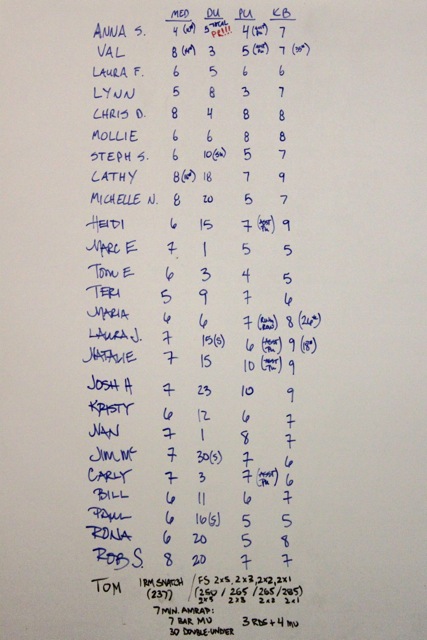 MED DU PU KB
ANNA S. 4 5 TOTAL PR!!! 4 7
VAL 8 3 5 7 (35#)
LAURA F. 6 5 6 6
LYNN 5 8 3 7
CHRIS D. 8 4 8 8
MOLLIE 6 6 8 8
STEPH S. 6 10 5 7
CATHY 8 18 7 9
MICHELLE N. 8 20 5 7
HEIDI 6 15 7 (ASST PU) 9
MARC E 7 1 5 5
TOM E 6 3 4 5
TERI 5 9 7 6
MARIA 6 6 7 (RING ROW) 8 (26#)
LAURA J. 7 15(S) 6 (ASST PU) 9 (18#)
NATALIE 7 15 10 (ASST PU) 9
JOSH H 7 23 10 9
KRISTY 6 12 6 7
NAN 7 1 8 7
JIM MC 7 30(S) 7 6
CARLY 7 3 7 (ASST PU) 6
BILL 6 11 6 7
PAUL 6 16(S) 5 5
RONA 6 20 5 8
ROB S. 8 20 7 7
TOM 1 RM SNATCH (237) / FS 2x5, 2x3, 2x2, 2x1
(250 / 265 / 265 / 285)
2x5 2x3 2x2 2x1
7 MIN. AMRAP:
7 BAR MU 3 RDS + 4 MU
30 DOUBLE-UNDER